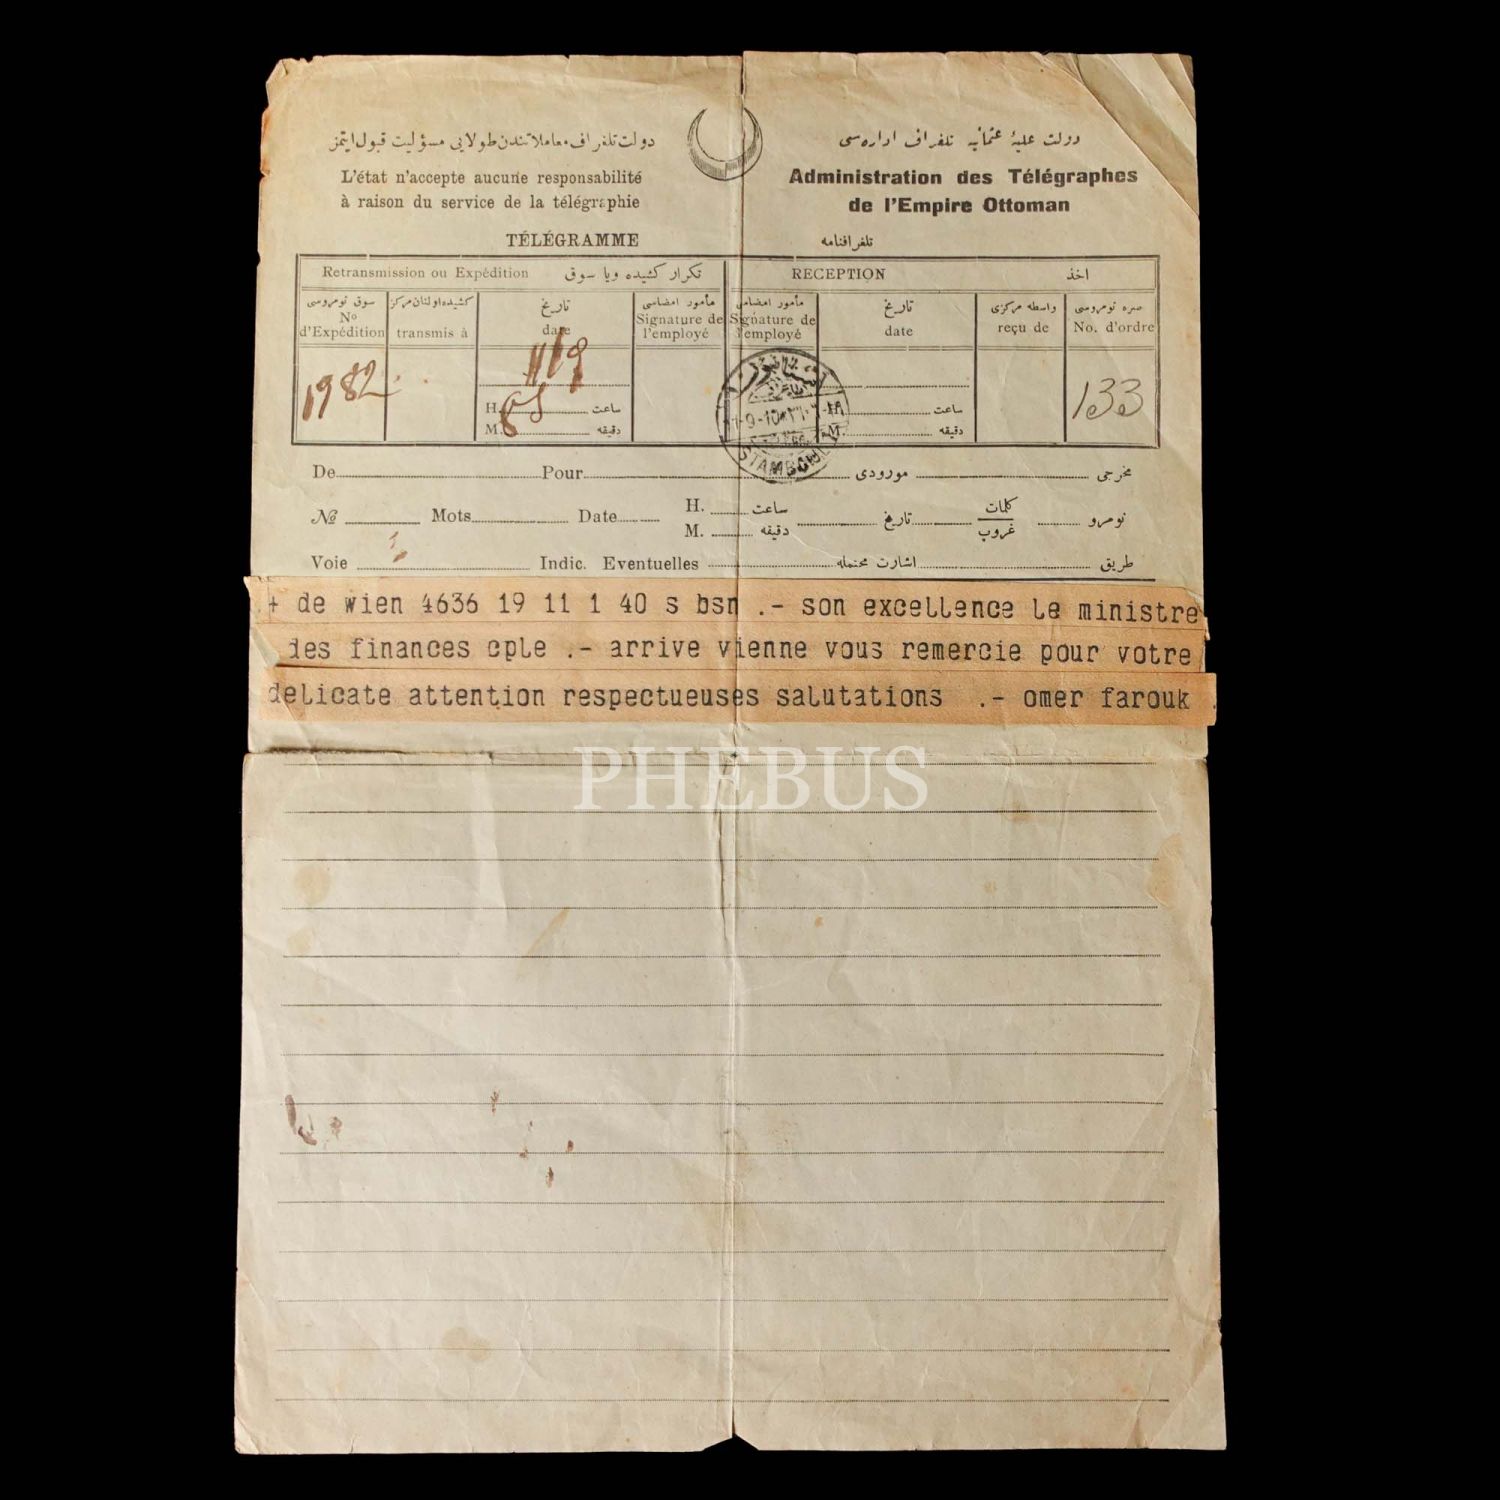 دولت تلغراف معاملاتندن طولایی مسؤلیت قبول ایتمز
L'état n'accepte aucune responsabilité
à raison du service de la télégraphie
دولت علیهٔ عثمانیه تلغراف اداره سی
Administration des Télégraphes
de l'Empire Ottoman
TÉLÉGRAMME
تلغرافنامه
Retransmission ou Expédition تکرار کشیده ویا سوق
RECEPTION اخذ
سوق نومروسی
No
d'Expédition
کشیده اولنان مرکز
transmis à
تاریخ
date
مأمور امضاسی
Signature de
l'employé
مأمور امضاسی
Signature de
l'employé
تاریخ
date
واسطه مرکزی
reçu de
صره نومروسی
No. d'ordre
1982
11/9
H. ساعت
M. دقیقه
ساعت
M. دقیقه
133
STAMBOUL
De Pour مورودی مخرجی
No Mots Date H. ساعت تاریخ کلمات نومرو
M. دقیقه غروپ
Voie Indic. Eventuelles اشارت محتمله طریق
+ de wien 4636 19 11 1 40 s bsn .- son excellence le ministre
des finances cple .- arrive vienne vous remercie pour votre
delicate attention respectueuses salutations .- omer farouk .
PHEBUS